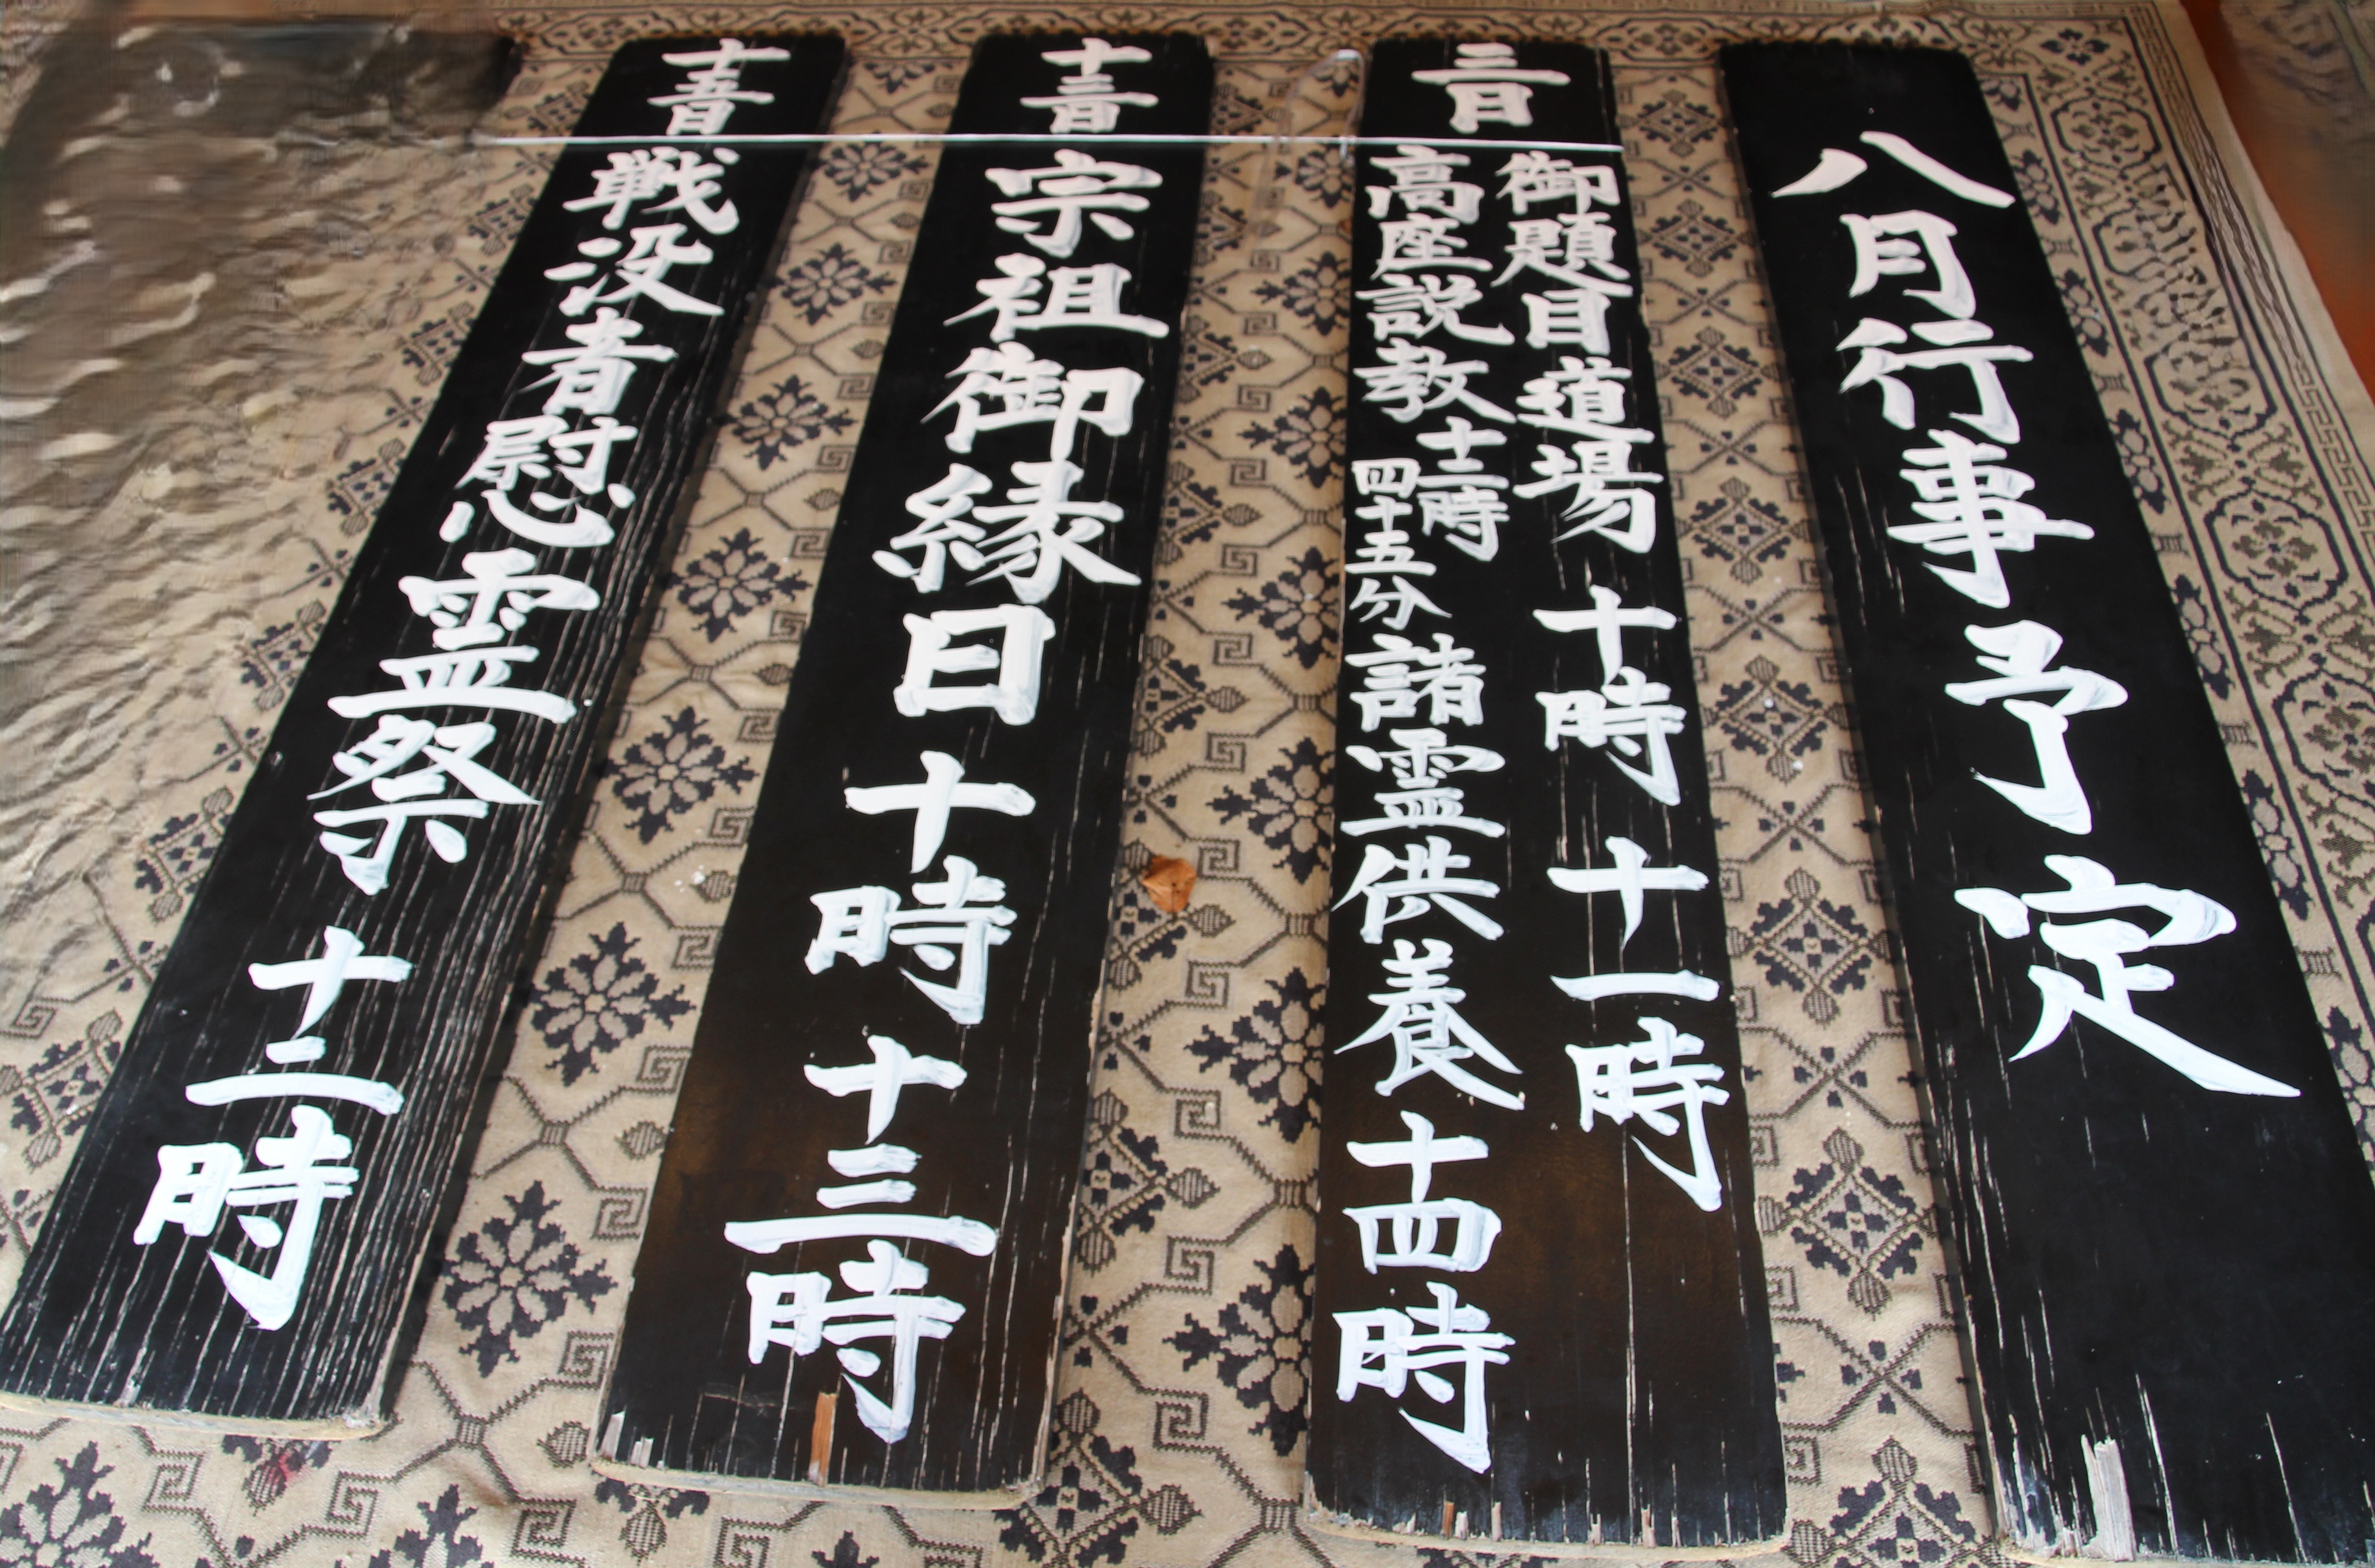 八月行事予定
三日
御題目道場 十時 十一時
高座説教 十二時四十五分 諸霊供養 十四時
十三日
宗祖御縁日 十時 十三時
十五日
戦没者慰霊祭 十二時